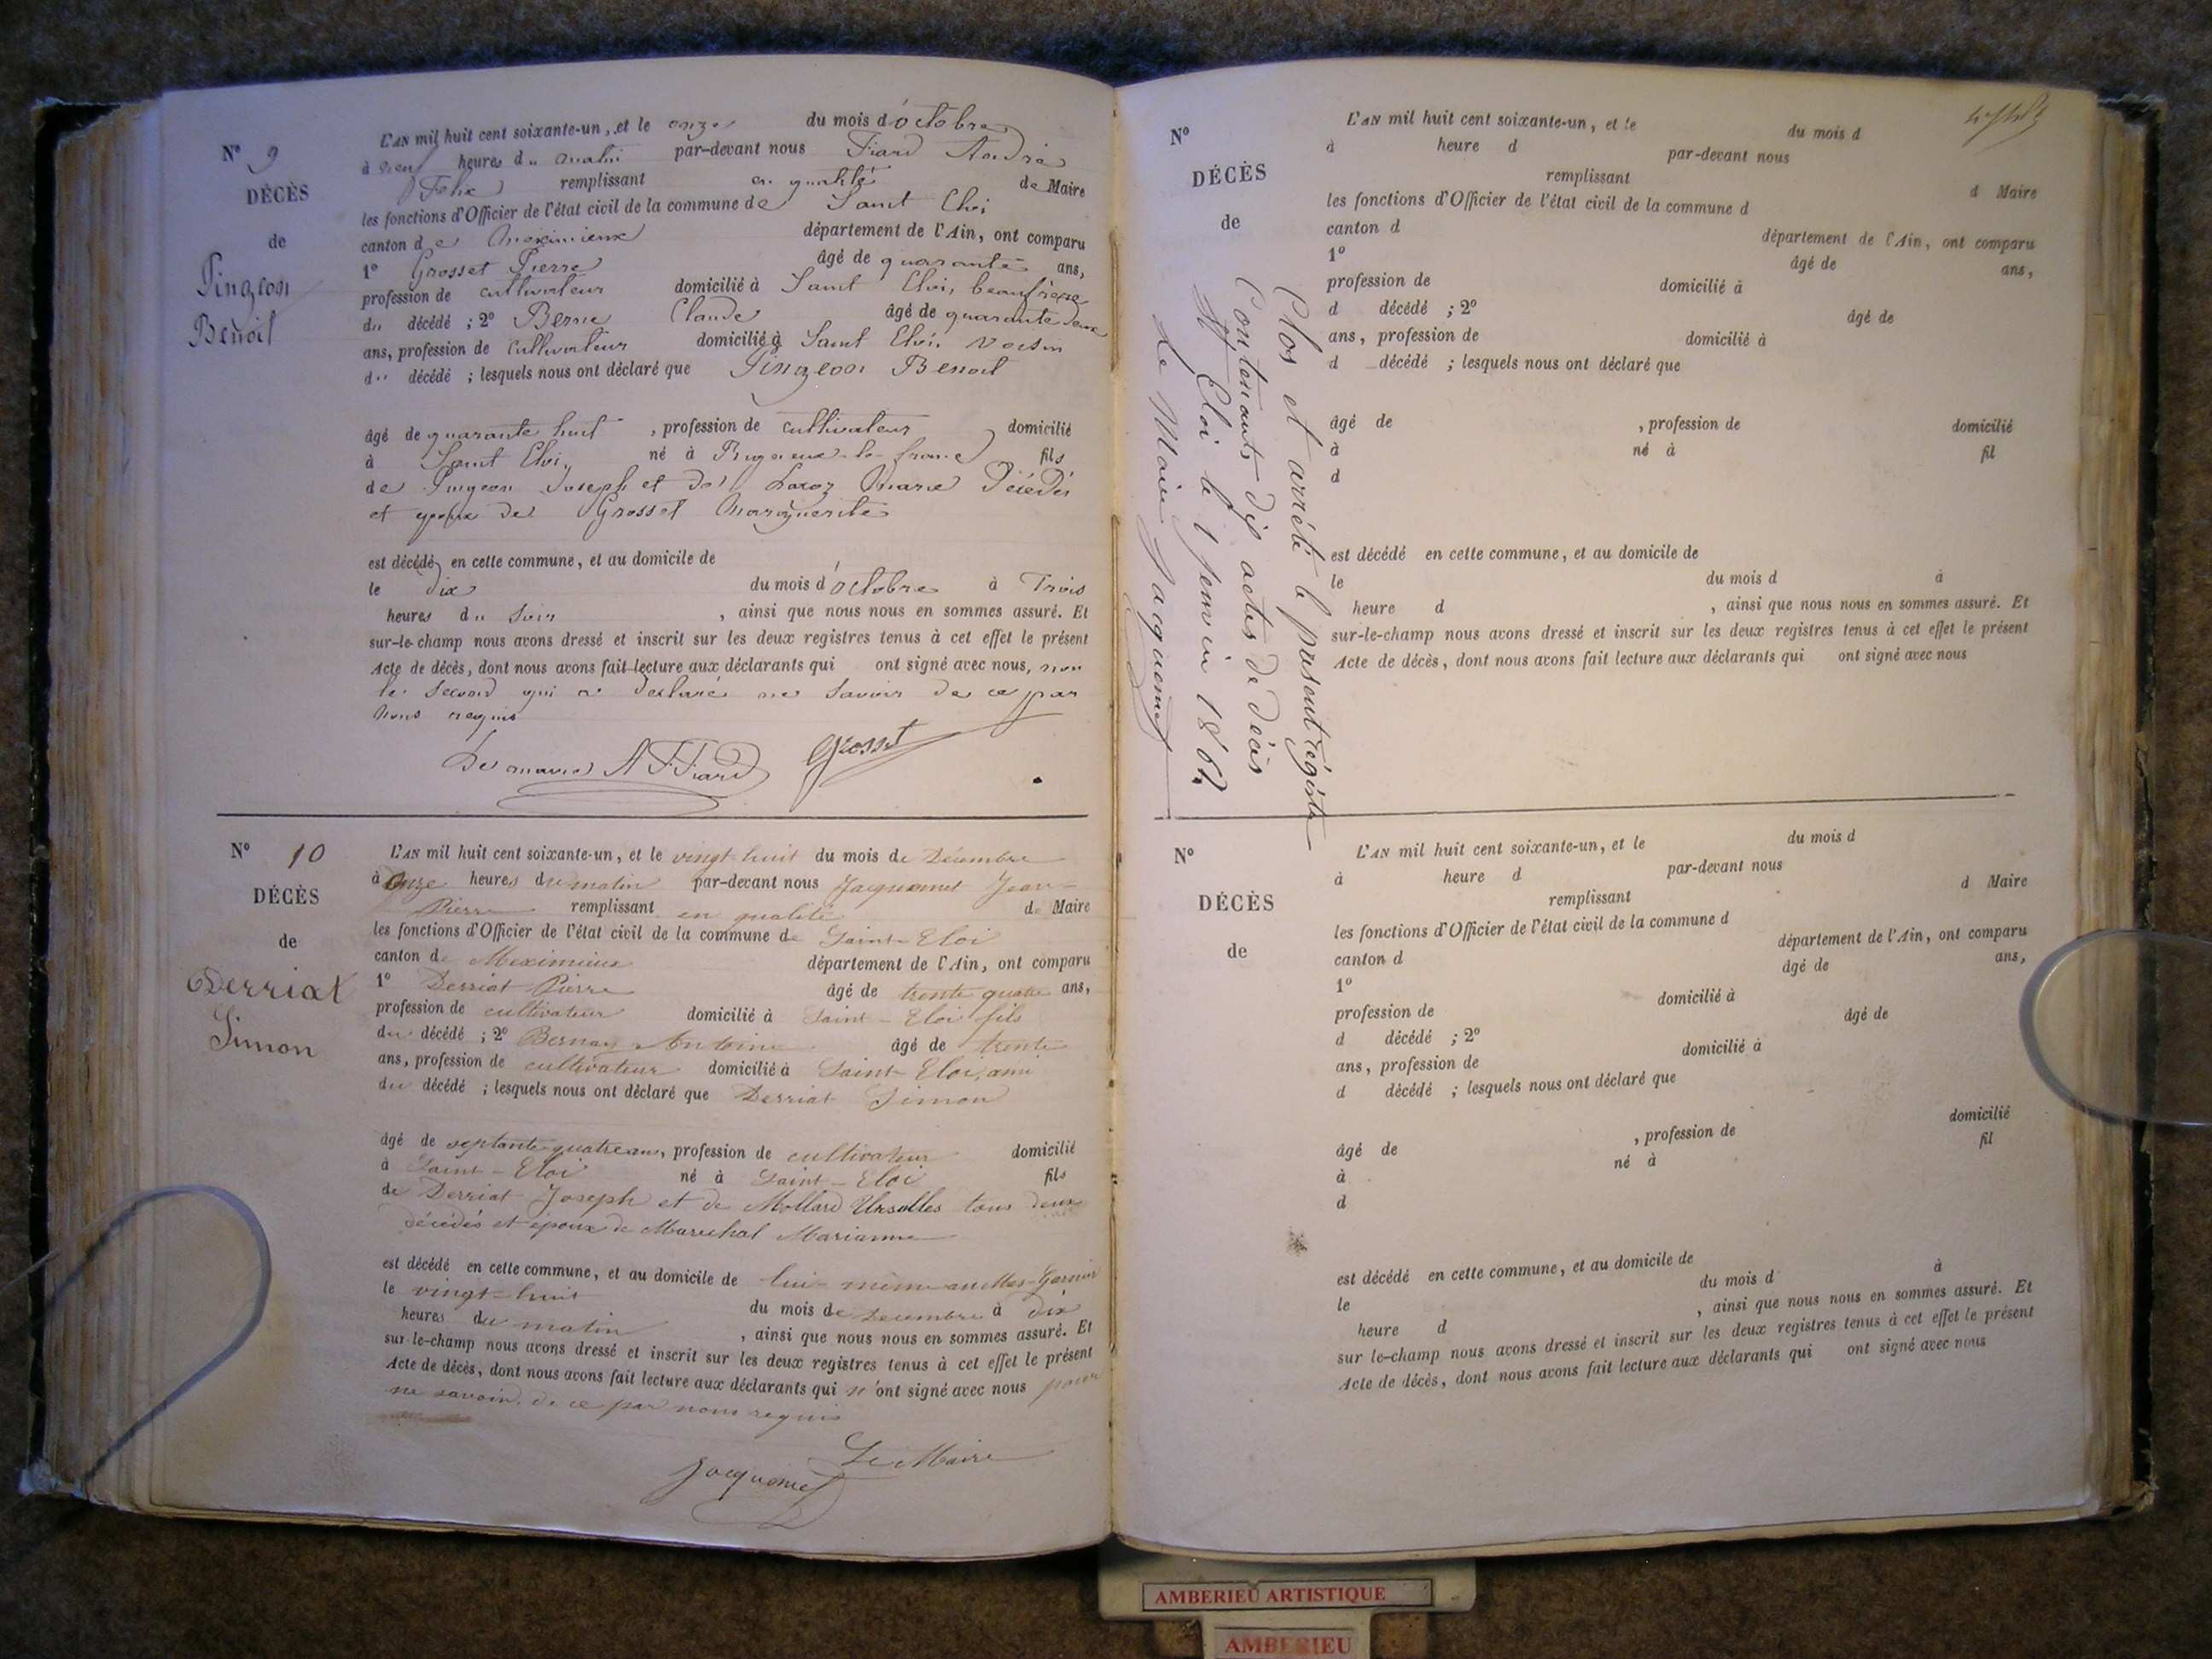 N° 9
DÉCÈS
de
Pingeon
Benoit
L'AN mil huit cent soixante-un, et le onze du mois d'octobre
à neuf heures du matin par-devant nous Fiard André
Felix remplissant en qualité de Maire
les fonctions d'Officier de l'état civil de la commune de Saint Eloi
canton de Meximieux département de l'Ain, ont comparu
1° Grosset Pierre âgé de quarante ans,
profession de cultivateur domicilié à Saint Eloi, beaufrère
du décédé ; 2° Berne Claude âgé de quarante deux
ans, profession de cultivateur domicilié à Saint Eloi, voisin
du décédé ; lesquels nous ont déclaré que Pingeon Benoit
âgé de quarante huit , profession de cultivateur domicilié
à Saint Eloi, né à Rigneux-le-franc fils
de Pingeon Joseph et de Marie Décédés
et epoux de Grosset Marguerite
est décédé en cette commune, et au domicile de
le dix du mois d'octobre à Trois
heures du soir , ainsi que nous nous en sommes assuré. Et
sur-le-champ nous avons dressé et inscrit sur les deux registres tenus à cet effet le présent
Acte de décès, dont nous avons fait lecture aux déclarants qui ont signé avec nous, non
le second qui a déclaré ne savoir de ce par
nous requis
Le maire A F Fiard Grosset
N° 10
DÉCÈS
de
Derriat
Simon
L'AN mil huit cent soixante-un, et le vingt-huit du mois de Décembre
à Onze heures du matin par-devant nous Jacquemet Jean-
Pierre remplissant en qualité de Maire
les fonctions d'Officier de l'état civil de la commune de Saint-Eloi
canton de Meximieux département de l'Ain, ont comparu
1° Derriat Pierre âgé de trente quatre ans,
profession de cultivateur domicilié à Saint-Eloi fils
du décédé ; 2° Bernay Antoine âgé de trente
ans, profession de cultivateur domicilié à Saint-Eloi, ami
du décédé ; lesquels nous ont déclaré que Derriat Simon
âgé de septante quatre ans, profession de cultivateur domicilié
à Saint-Eloi né à Saint-Eloi fils
de Derriat Joseph et de Mollard Ursulles tous deux
décédés et époux de Marechal Marianne
est décédé en cette commune, et au domicile de lui-même
le vingt-huit du mois de Décembre à dix
heures du matin , ainsi que nous nous en sommes assuré. Et
sur-le-champ nous avons dressé et inscrit sur les deux registres tenus à cet effet le présent
Acte de décès, dont nous avons fait lecture aux déclarants qui n'ont signé avec nous pour
ne savoir, de ce par nous requis
Le Maire
Jacquemet
Clos et arrêté le présent régistre
Contenant dix actes de décès
St Eloi le 1 janvier 1862
Le Maire Jacquemet
N°
DÉCÈS
de
L'AN mil huit cent soixante-un, et le du mois d
à heure d par-devant nous
remplissant d Maire
les fonctions d'Officier de l'état civil de la commune d
canton d département de l'Ain, ont comparu
1° âgé de ans,
profession de domicilié à
d décédé ; 2° âgé de
ans, profession de domicilié à
d décédé ; lesquels nous ont déclaré que
âgé de , profession de domicilié
à né à fil
d
est décédé en cette commune, et au domicile de
le du mois d à
heure d , ainsi que nous nous en sommes assuré. Et
sur-le-champ nous avons dressé et inscrit sur les deux registres tenus à cet effet le présent
Acte de décès, dont nous avons fait lecture aux déclarants qui ont signé avec nous
N°
DÉCÈS
de
L'AN mil huit cent soixante-un, et le du mois d
à heure d par-devant nous
remplissant d Maire
les fonctions d'Officier de l'état civil de la commune d
canton d département de l'Ain, ont comparu
1° âgé de ans,
profession de domicilié à
d décédé ; 2° âgé de
ans, profession de domicilié à
d décédé ; lesquels nous ont déclaré que
âgé de , profession de domicilié
à né à fil
d
est décédé en cette commune, et au domicile de
le du mois d à
heure d , ainsi que nous nous en sommes assuré. Et
sur le-champ nous avons dressé et inscrit sur les deux registres tenus à cet effet le présent
Acte de décès, dont nous avons fait lecture aux déclarants qui ont signé avec nous
AMBERIEU ARTISTIQUE
AMBERIEU